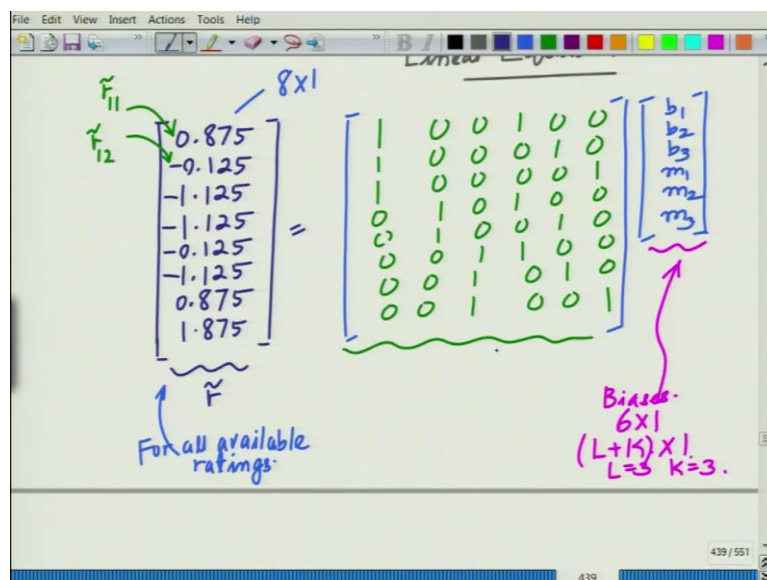 File Edit View Insert Actions Tools Help
B I
8x1
r̃11
r̃12
0.875
-0.125
-1.125
-1.125
-0.125
-1.125
0.875
1.875
=
1 0 0 1 0 0
1 0 0 0 1 0
1 0 0 0 0 1
0 1 0 1 0 0
0 1 0 0 1 0
0 0 1 1 0 0
0 0 1 0 1 0
0 0 1 0 0 1
b1
b2
b3
m1
m2
m3
r̃
For all available
ratings.
Biases.
6x1
(L+K)x1.
L=3 K=3.
439 / 551
439